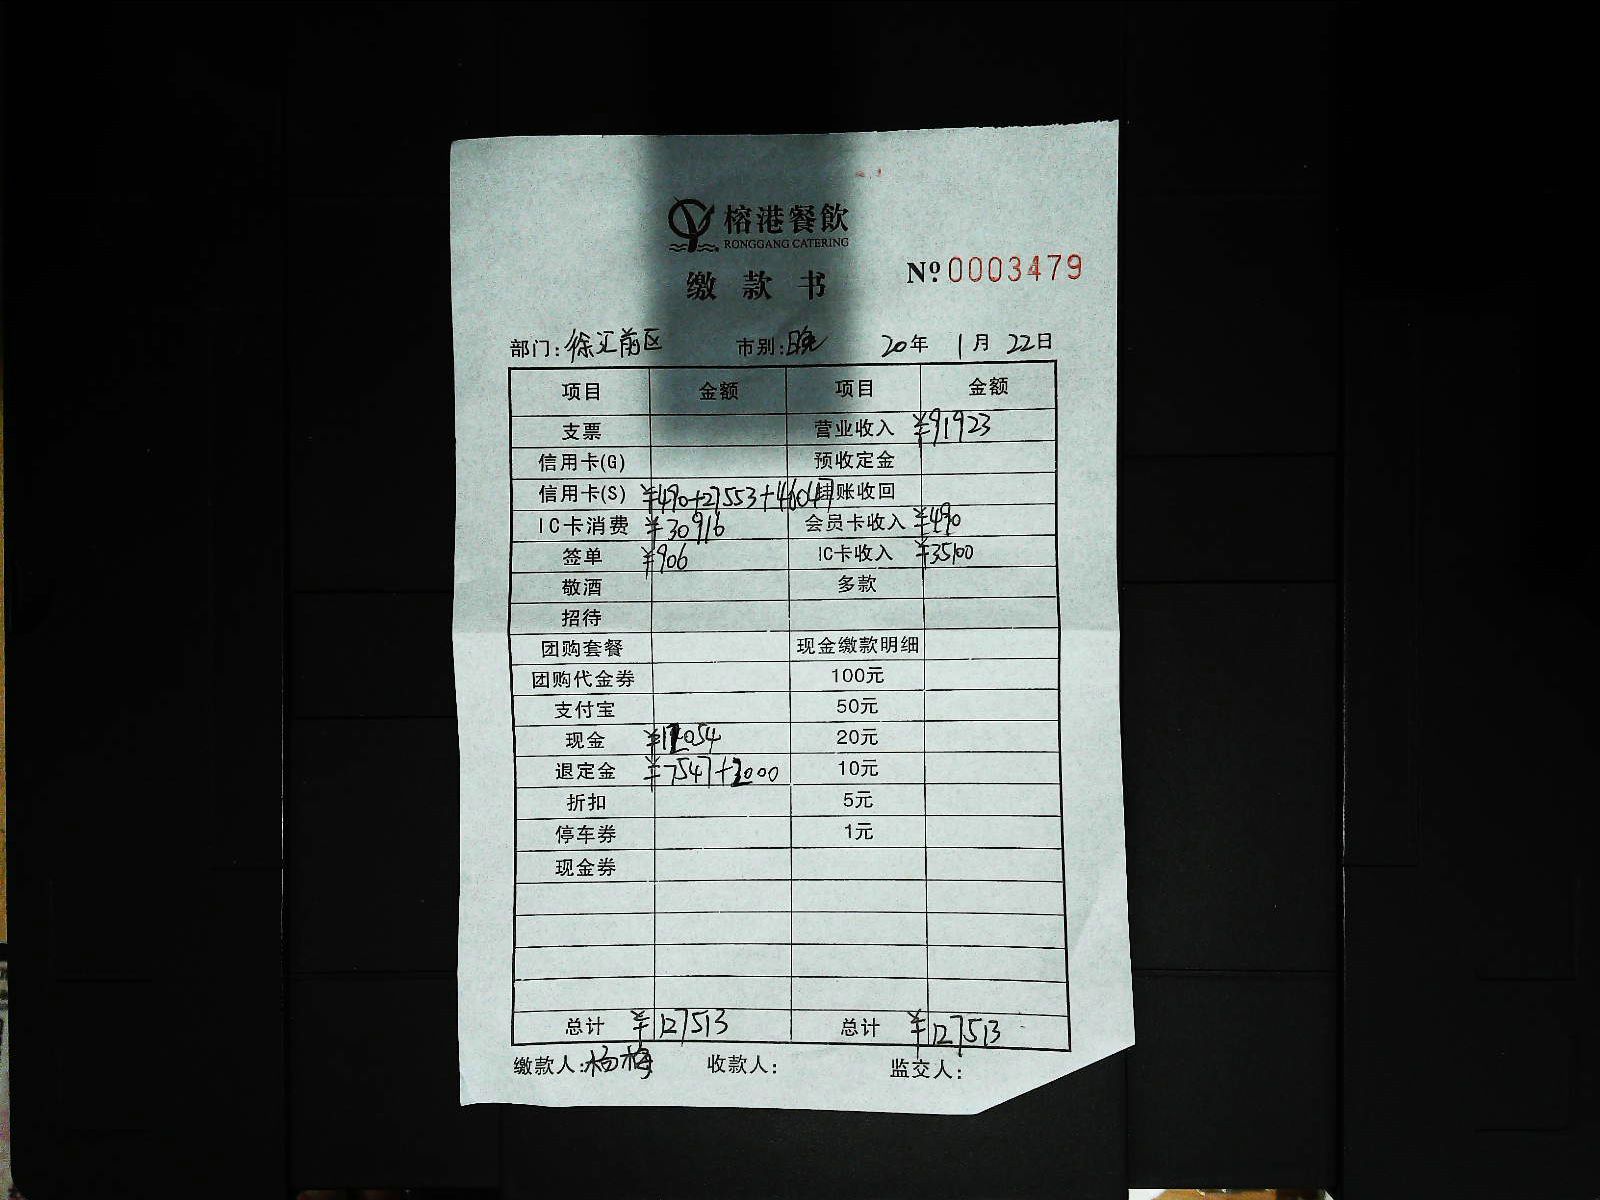 榕港餐飲
RONGGANG CATERING
缴款书
Nº 0003479
部门:徐汇前区 市别:晚 20年 1月 22日
项目 金额 项目 金额
支票 营业收入 ¥91923
信用卡(G) 预收定金
信用卡(S) ¥490+27553+46047 挂账收回
IC卡消费 ¥30916 会员卡收入 ¥490
签单 ¥906 IC卡收入 ¥35100
敬酒 多款
招待
团购套餐 现金缴款明细
团购代金券 100元
支付宝 50元
现金 ¥12054 20元
退定金 ¥7547+2000 10元
折扣 5元
停车券 1元
现金券
总计 ¥127513 总计 ¥127513
缴款人:杨梅 收款人: 监交人: